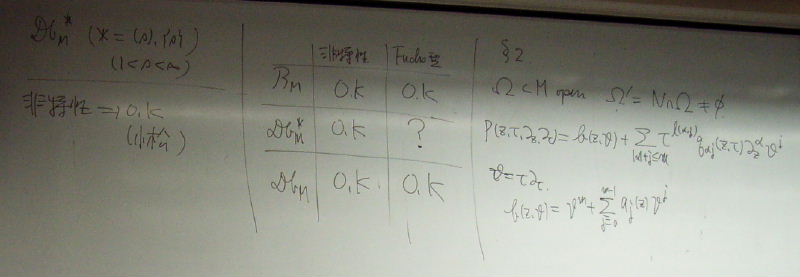 Db_M^* (* = (s), {s})
(1 < s < ∞)
非特性 ⇒ O.K
(小松)
非特性 Fuchs型
B_M O.K O.K
Db_M^* O.K ?
Db_M O.K. O.K
§2
Ω ⊂ M open Ω' = N∩Ω ≠ ∅.
P(z,τ,∂_z,∂_τ) = b(z,ϑ) + Σ_{|α|+j≤m} τ^{l(α,j)} a_{αj}(z,τ) ∂_z^α ϑ^j
ϑ = τ∂_τ.
b(z,ϑ) = ϑ^m + Σ_{j=0}^{m-1} a_j(z) ϑ^j